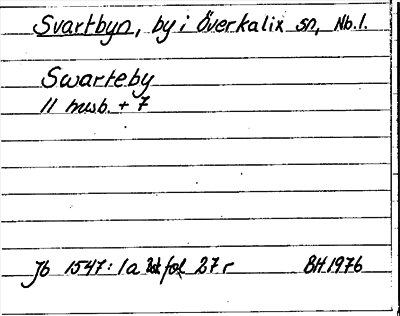 Svartbyn, by i Överkalix sn, Nb.l.
Swarteby
11 husb. + 7
Jb 1547: 1a fol 27 r BH 1976